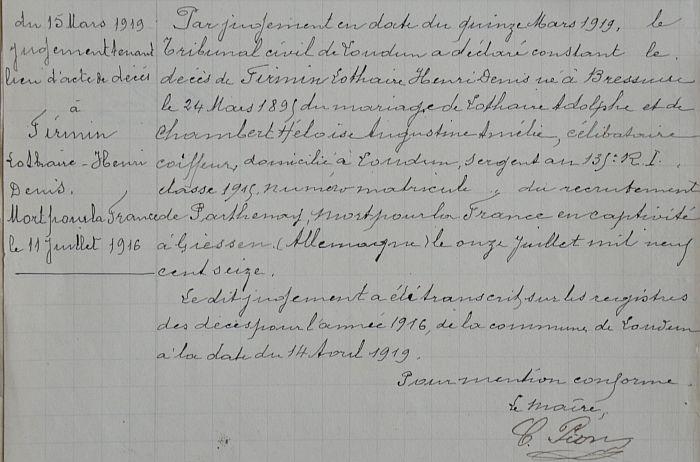 du 15 Mars 1919
jugement tenant
lieu d'acte de décès
à
Firmin
Lothaire-Henri
Denis.
Mort pour la France
le 11 Juillet 1916
Par jugement en date du quinze Mars 1919, le
Tribunal civil de Loudun a déclaré constant le
décès de Firmin Lothaire Henri Denis né à Bressuire
le 24 Mars 1895 du mariage de Lothaire Adolphe et de
Chambert Héloïse Augustine Amélie, célibataire
coiffeur, domicilié à Loudun, sergent au 135e R.I.
classe 1915, numéro matricule „ du recrutement
de Parthenay, Mort pour la France en captivité
à Giessen (Allemagne) le onze Juillet mil neuf
cent seize.
Le dit jugement a été transcrit sur les registres
des décès pour l'année 1916, de la commune de Loudun
à la date du 14 Avril 1919.
Pour mention conforme
Le Maire,